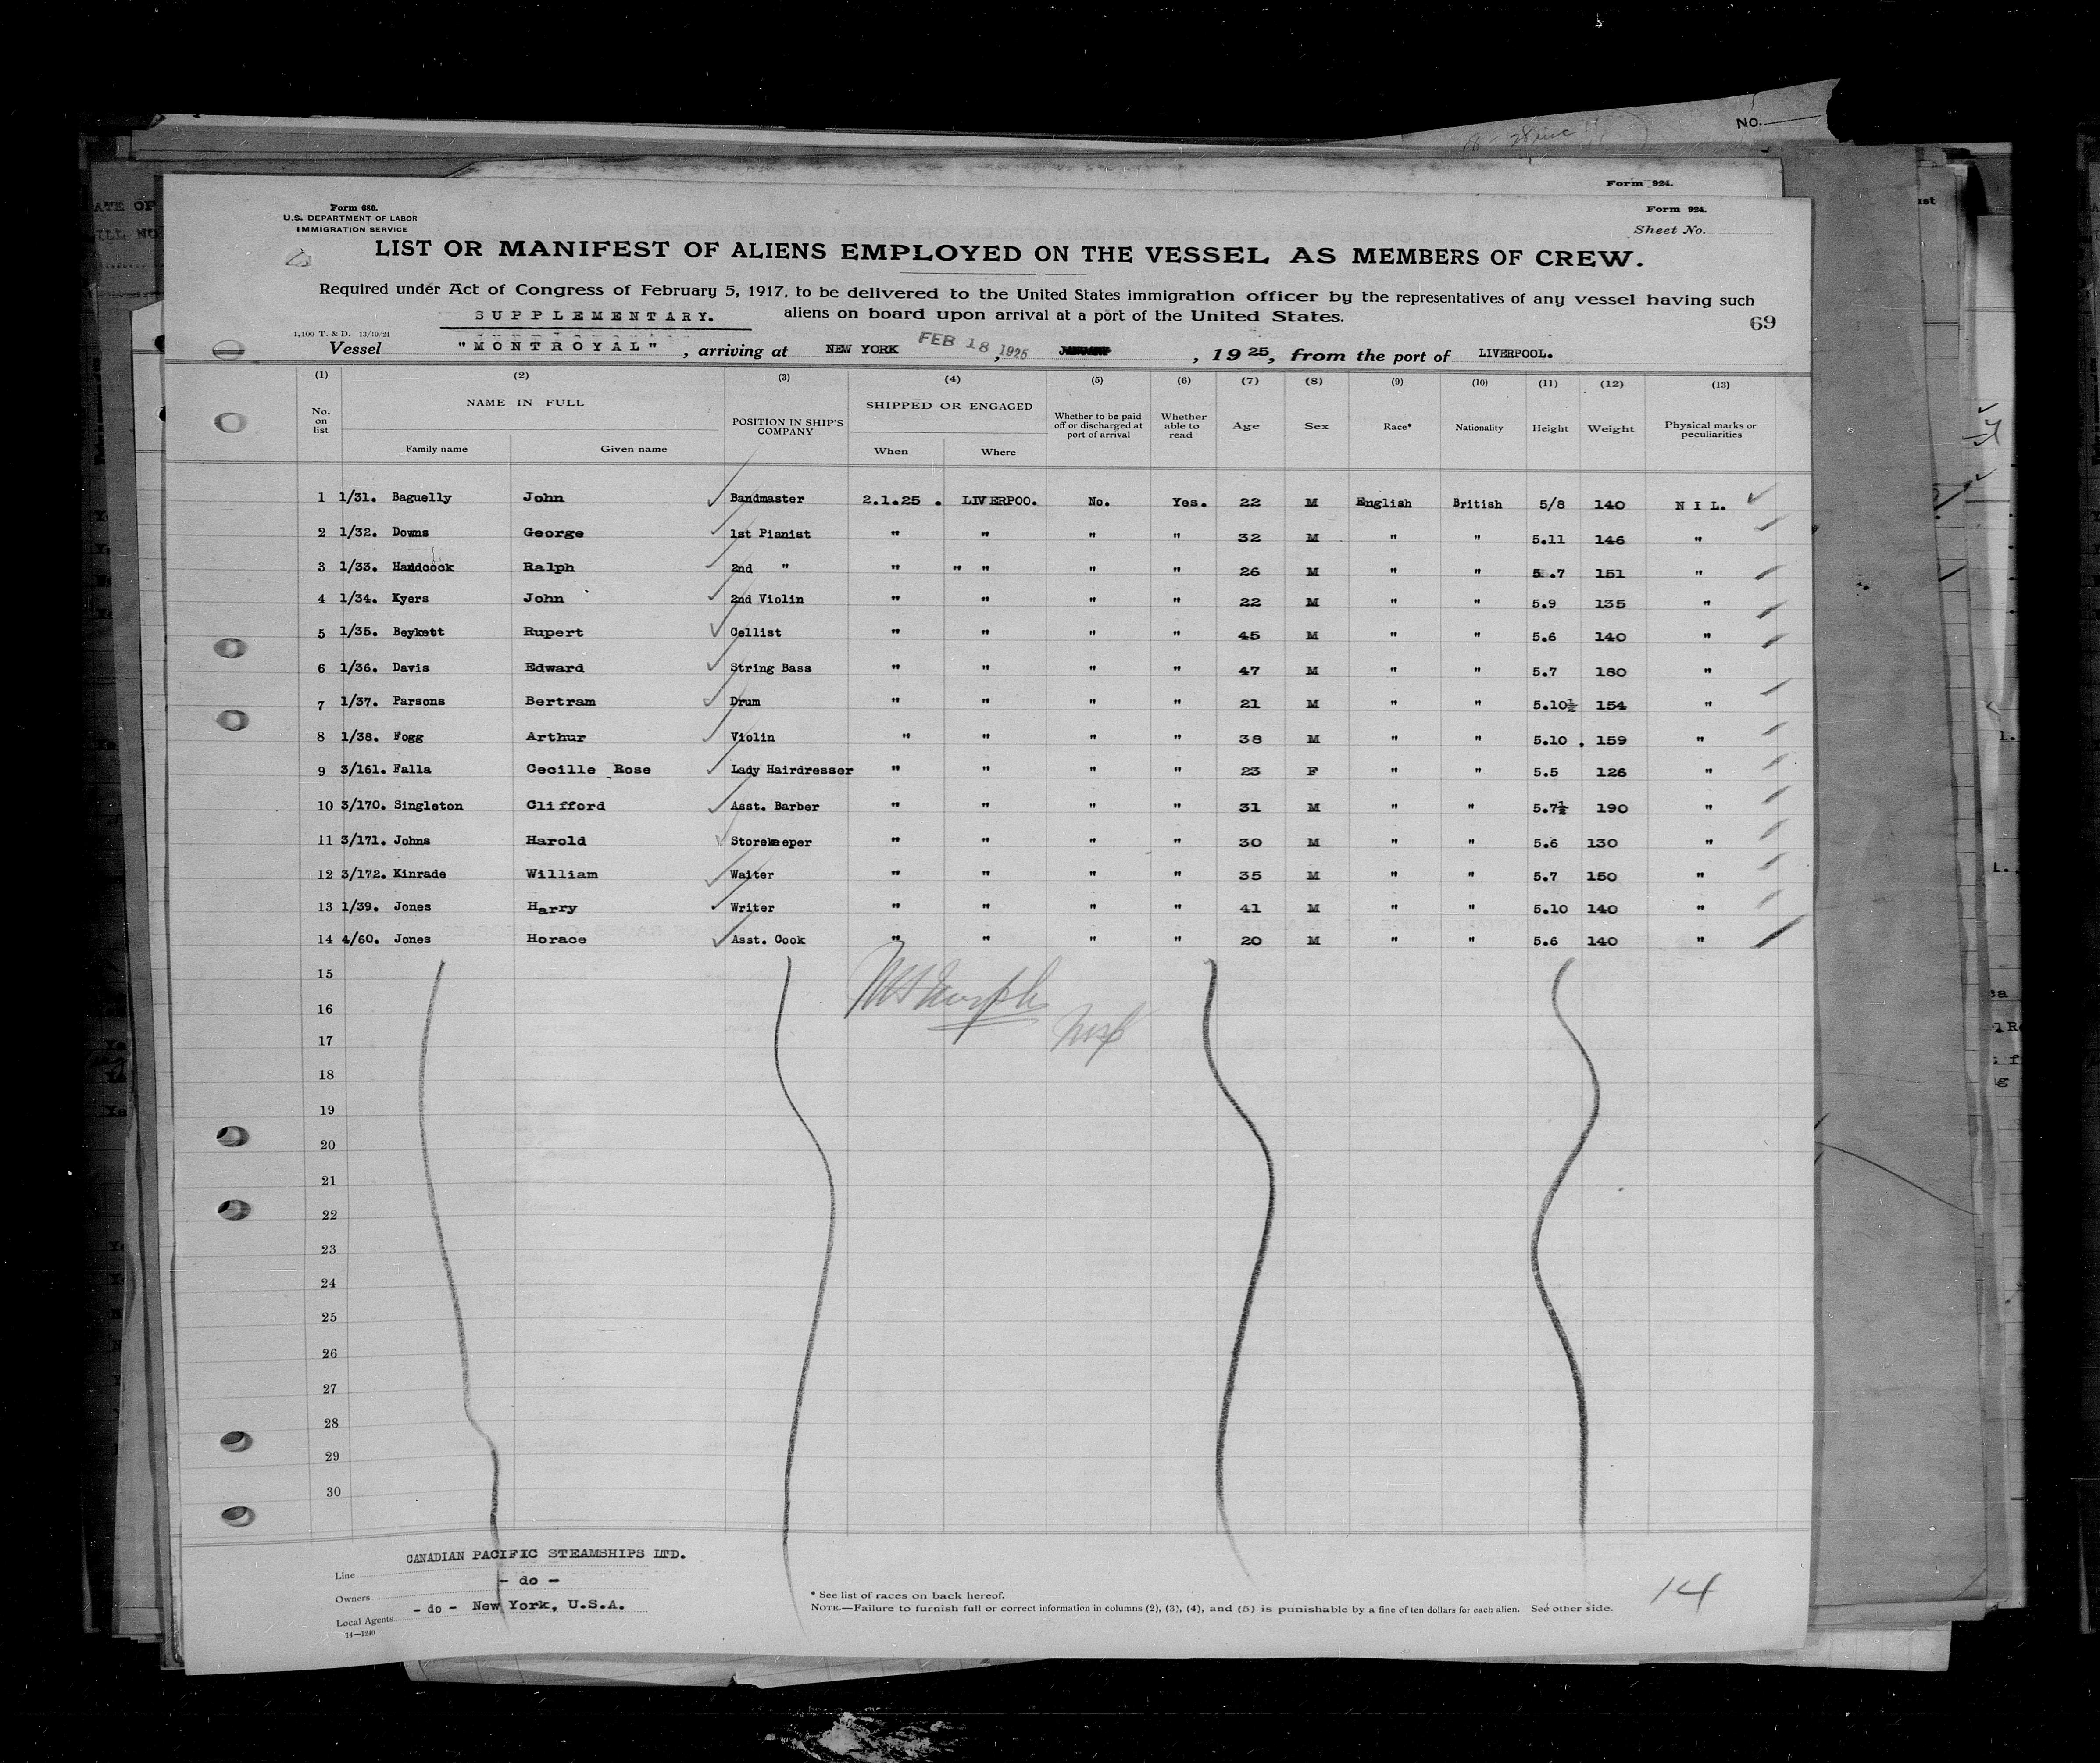 No.
Form 924.
Form 680.
U.S. DEPARTMENT OF LABOR
IMMIGRATION SERVICE
Form 924.
Sheet No.
LIST OR MANIFEST OF ALIENS EMPLOYED ON THE VESSEL AS MEMBERS OF CREW.
Required under Act of Congress of February 5, 1917, to be delivered to the United States immigration officer by the representatives of any vessel having such
SUPPLEMENTARY. aliens on board upon arrival at a port of the United States.
69
1,100 T. & D. 13/10/24
Vessel "MONTROYAL", arriving at NEW YORK FEB 18, 1925, 1925, from the port of LIVERPOOL.
(1) (2) (3) (4) (5) (6) (7) (8) (9) (10) (11) (12) (13)
No. on list NAME IN FULL POSITION IN SHIP'S COMPANY SHIPPED OR ENGAGED Whether to be paid off or discharged at port of arrival Whether able to read Age Sex Race* Nationality Height Weight Physical marks or peculiarities
Family name Given name When Where
1 1/31. Baguelly John Bandmaster 2.1.25 . LIVERPOO. No. Yes. 22 M English British 5/8 140 N I L.
2 1/32. Downs George 1st Pianist " " " " 32 M " " 5.11 146 "
3 1/33. Handcock Ralph 2nd " " " " " " 26 M " " 5.7 151 "
4 1/34. Kyers John 2nd Violin " " " " 22 M " " 5.9 135 "
5 1/35. Beykett Rupert Cellist " " " " 45 M " " 5.6 140 "
6 1/36. Davis Edward String Bass " " " " 47 M " " 5.7 180 "
7 1/37. Parsons Bertram Drum " " " " 21 M " " 5.10½ 154 "
8 1/38. Fogg Arthur Violin " " " " 38 M " " 5.10 . 159 "
9 3/161. Falla Cecille Rose Lady Hairdresser " " " " 23 F " " 5.5 126 "
10 3/170. Singleton Clifford Asst. Barber " " " " 31 M " " 5.7½ 190 "
11 3/171. Johns Harold Storekeeper " " " " 30 M " " 5.6 130 "
12 3/172. Kinrade William Waiter " " " " 35 M " " 5.7 150 "
13 1/39. Jones Harry Writer " " " " 41 M " " 5.10 140 "
14 4/60. Jones Horace Asst. Cook " " " " 20 M " " 5.6 140 "
15
16
17
18
19
20
21
22
23
24
25
26
27
28
29
30
Line CANADIAN PACIFIC STEAMSHIPS LTD.
Owners - do -
Local Agents - do - New York, U.S.A.
14—1240
* See list of races on back hereof.
NOTE.—Failure to furnish full or correct information in columns (2), (3), (4), and (5) is punishable by a fine of ten dollars for each alien. See other side.
14